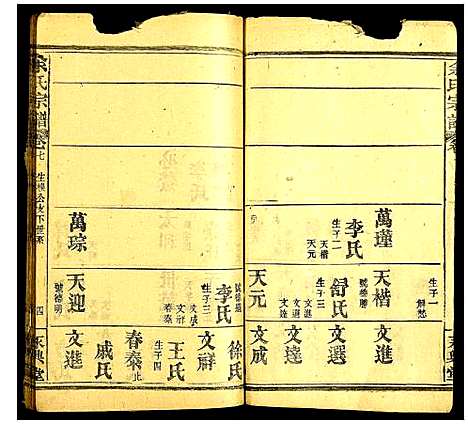 余氏宗譜
萬瑾
李氏
生子二
天楷
天元
生子一
天楷
號德勝
舒氏
生子三
文選
文進
文達
天元
文進
文選
文達
文成
徐氏
余氏宗譜卷七
生樸公支下世系
四
永興堂
李氏
生子三
文成
文祥
春秦
萬琮
天迎
號德明
文祥
王氏
生子四
春秦
止
戚氏
文進